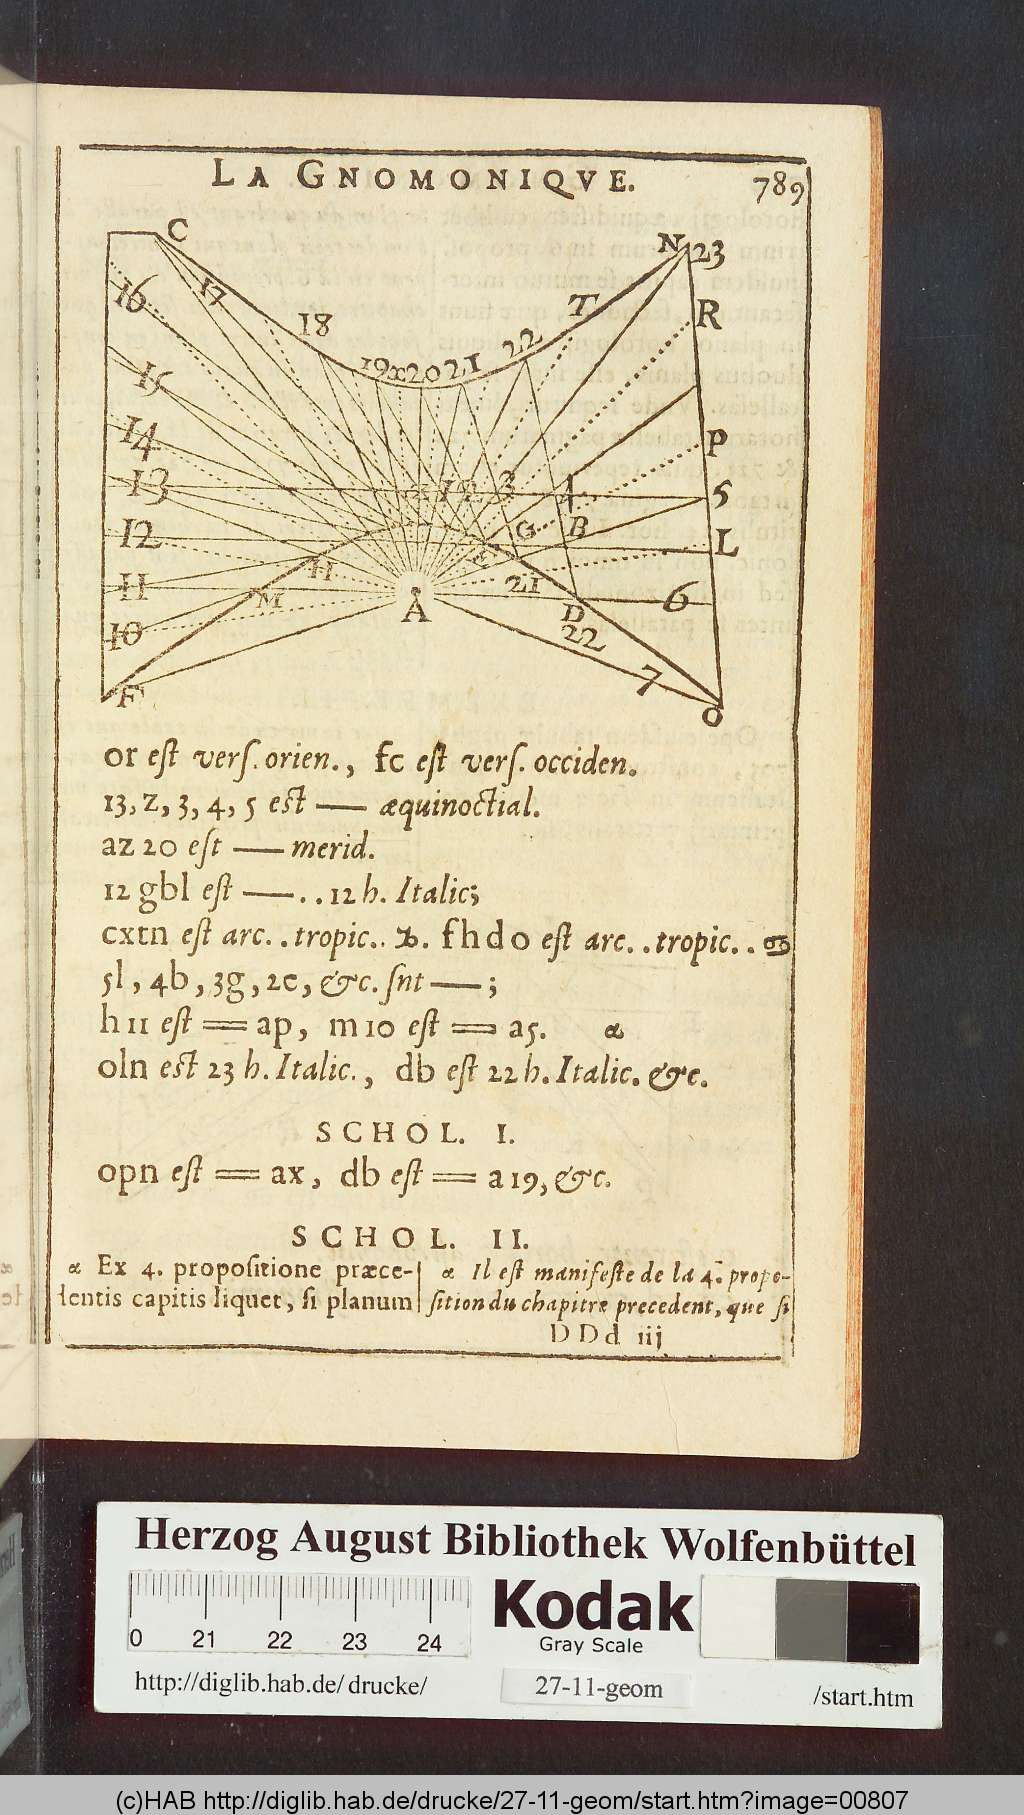 LA GNOMONIQVE.
789
C
N 23
16
17
R
T
18
22
19 x 20 21
15
14
P
13
Z 12 3 4
5
G B
12
L
H
E
11
M
21
6
A
D
10
22
7
F
O
or est vers. orien., fc est vers. occiden.
13, z, 3, 4, 5 est — æquinoctial.
az 20 est — merid.
12 gbl est — . . 12 h. Italic;
cxtn est arc. . tropic. . ♑. fhdo est arc. . tropic. . ♋
5l, 4b, 3g, 2e, &c. snt — ;
h 11 est == ap, m 10 est == a5. α
oln est 23 h. Italic., db est 22 h. Italic. &c.
SCHOL. I.
opn est == ax, db est == a 19, &c.
SCHOL. II.
α Ex 4. propositione præce-
dentis capitis liquet, si planum
α Il est manifeste de la 4.e propo-
sition du chapitre precedent, que si
DDd iij
Herzog August Bibliothek Wolfenbüttel
0 21 22 23 24
Kodak
Gray Scale
http://diglib.hab.de/drucke/
27-11-geom
/start.htm
(c)HAB http://diglib.hab.de/drucke/27-11-geom/start.htm?image=00807